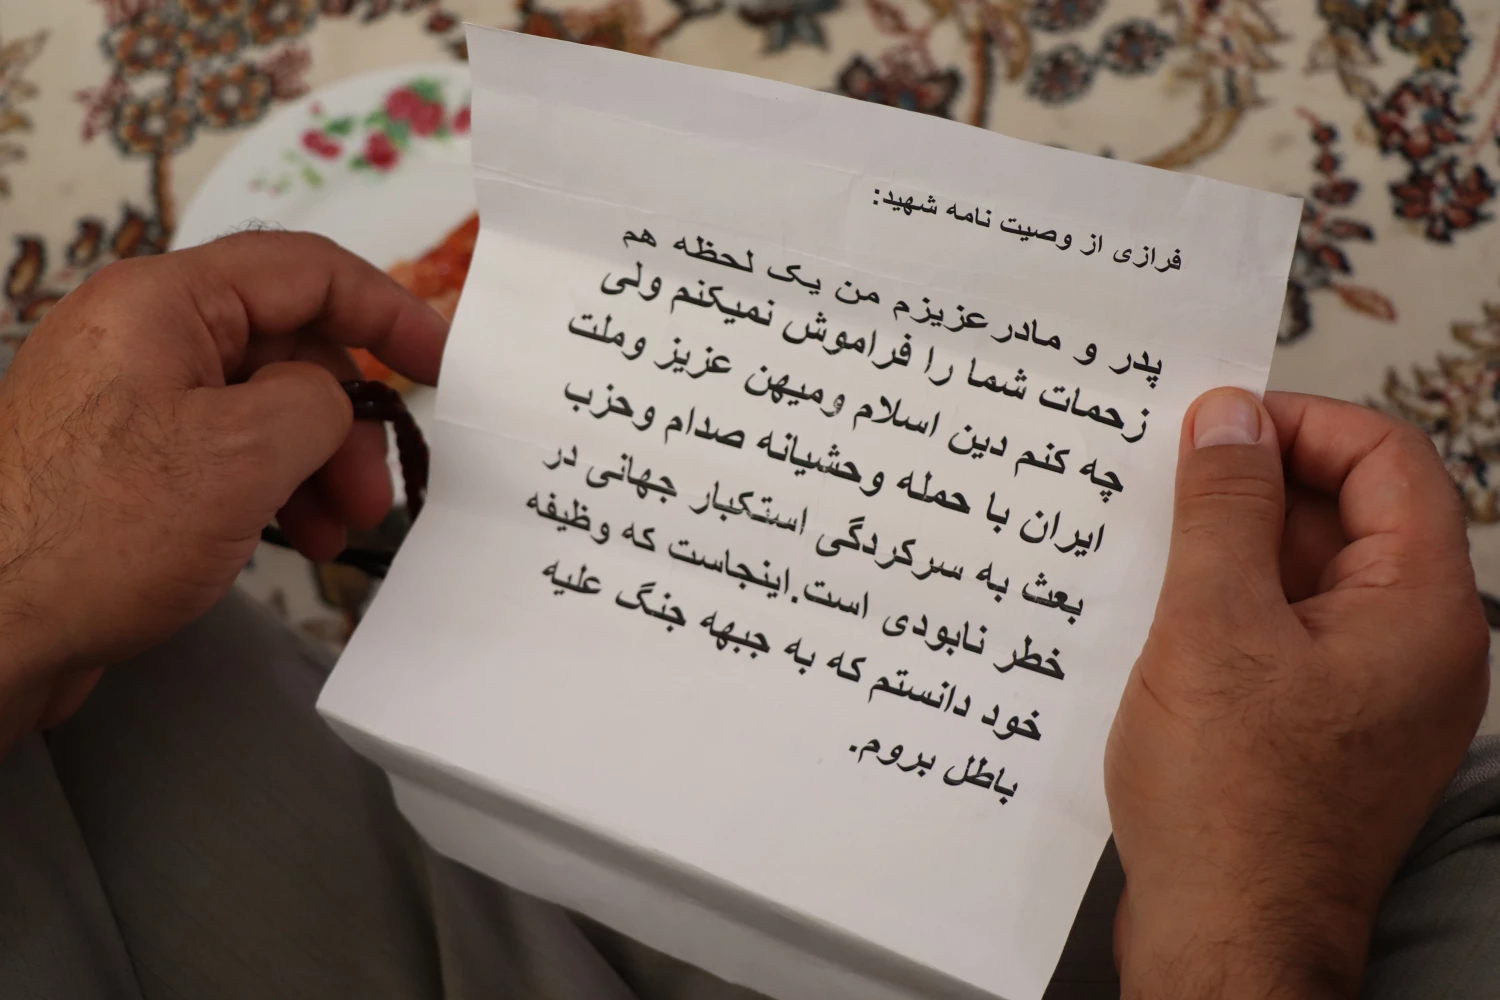 فرازی از وصیت نامه شهید:
پدر و مادرعزیزم من یک لحظه هم
زحمات شما را فراموش نمیکنم ولی
چه کنم دین اسلام ومیهن عزیز وملت
ایران با حمله وحشیانه صدام وحزب
بعث به سرکردگی استکبار جهانی در
خطر نابودی است.اینجاست که وظیفه
خود دانستم که به جبهه جنگ علیه
باطل بروم.